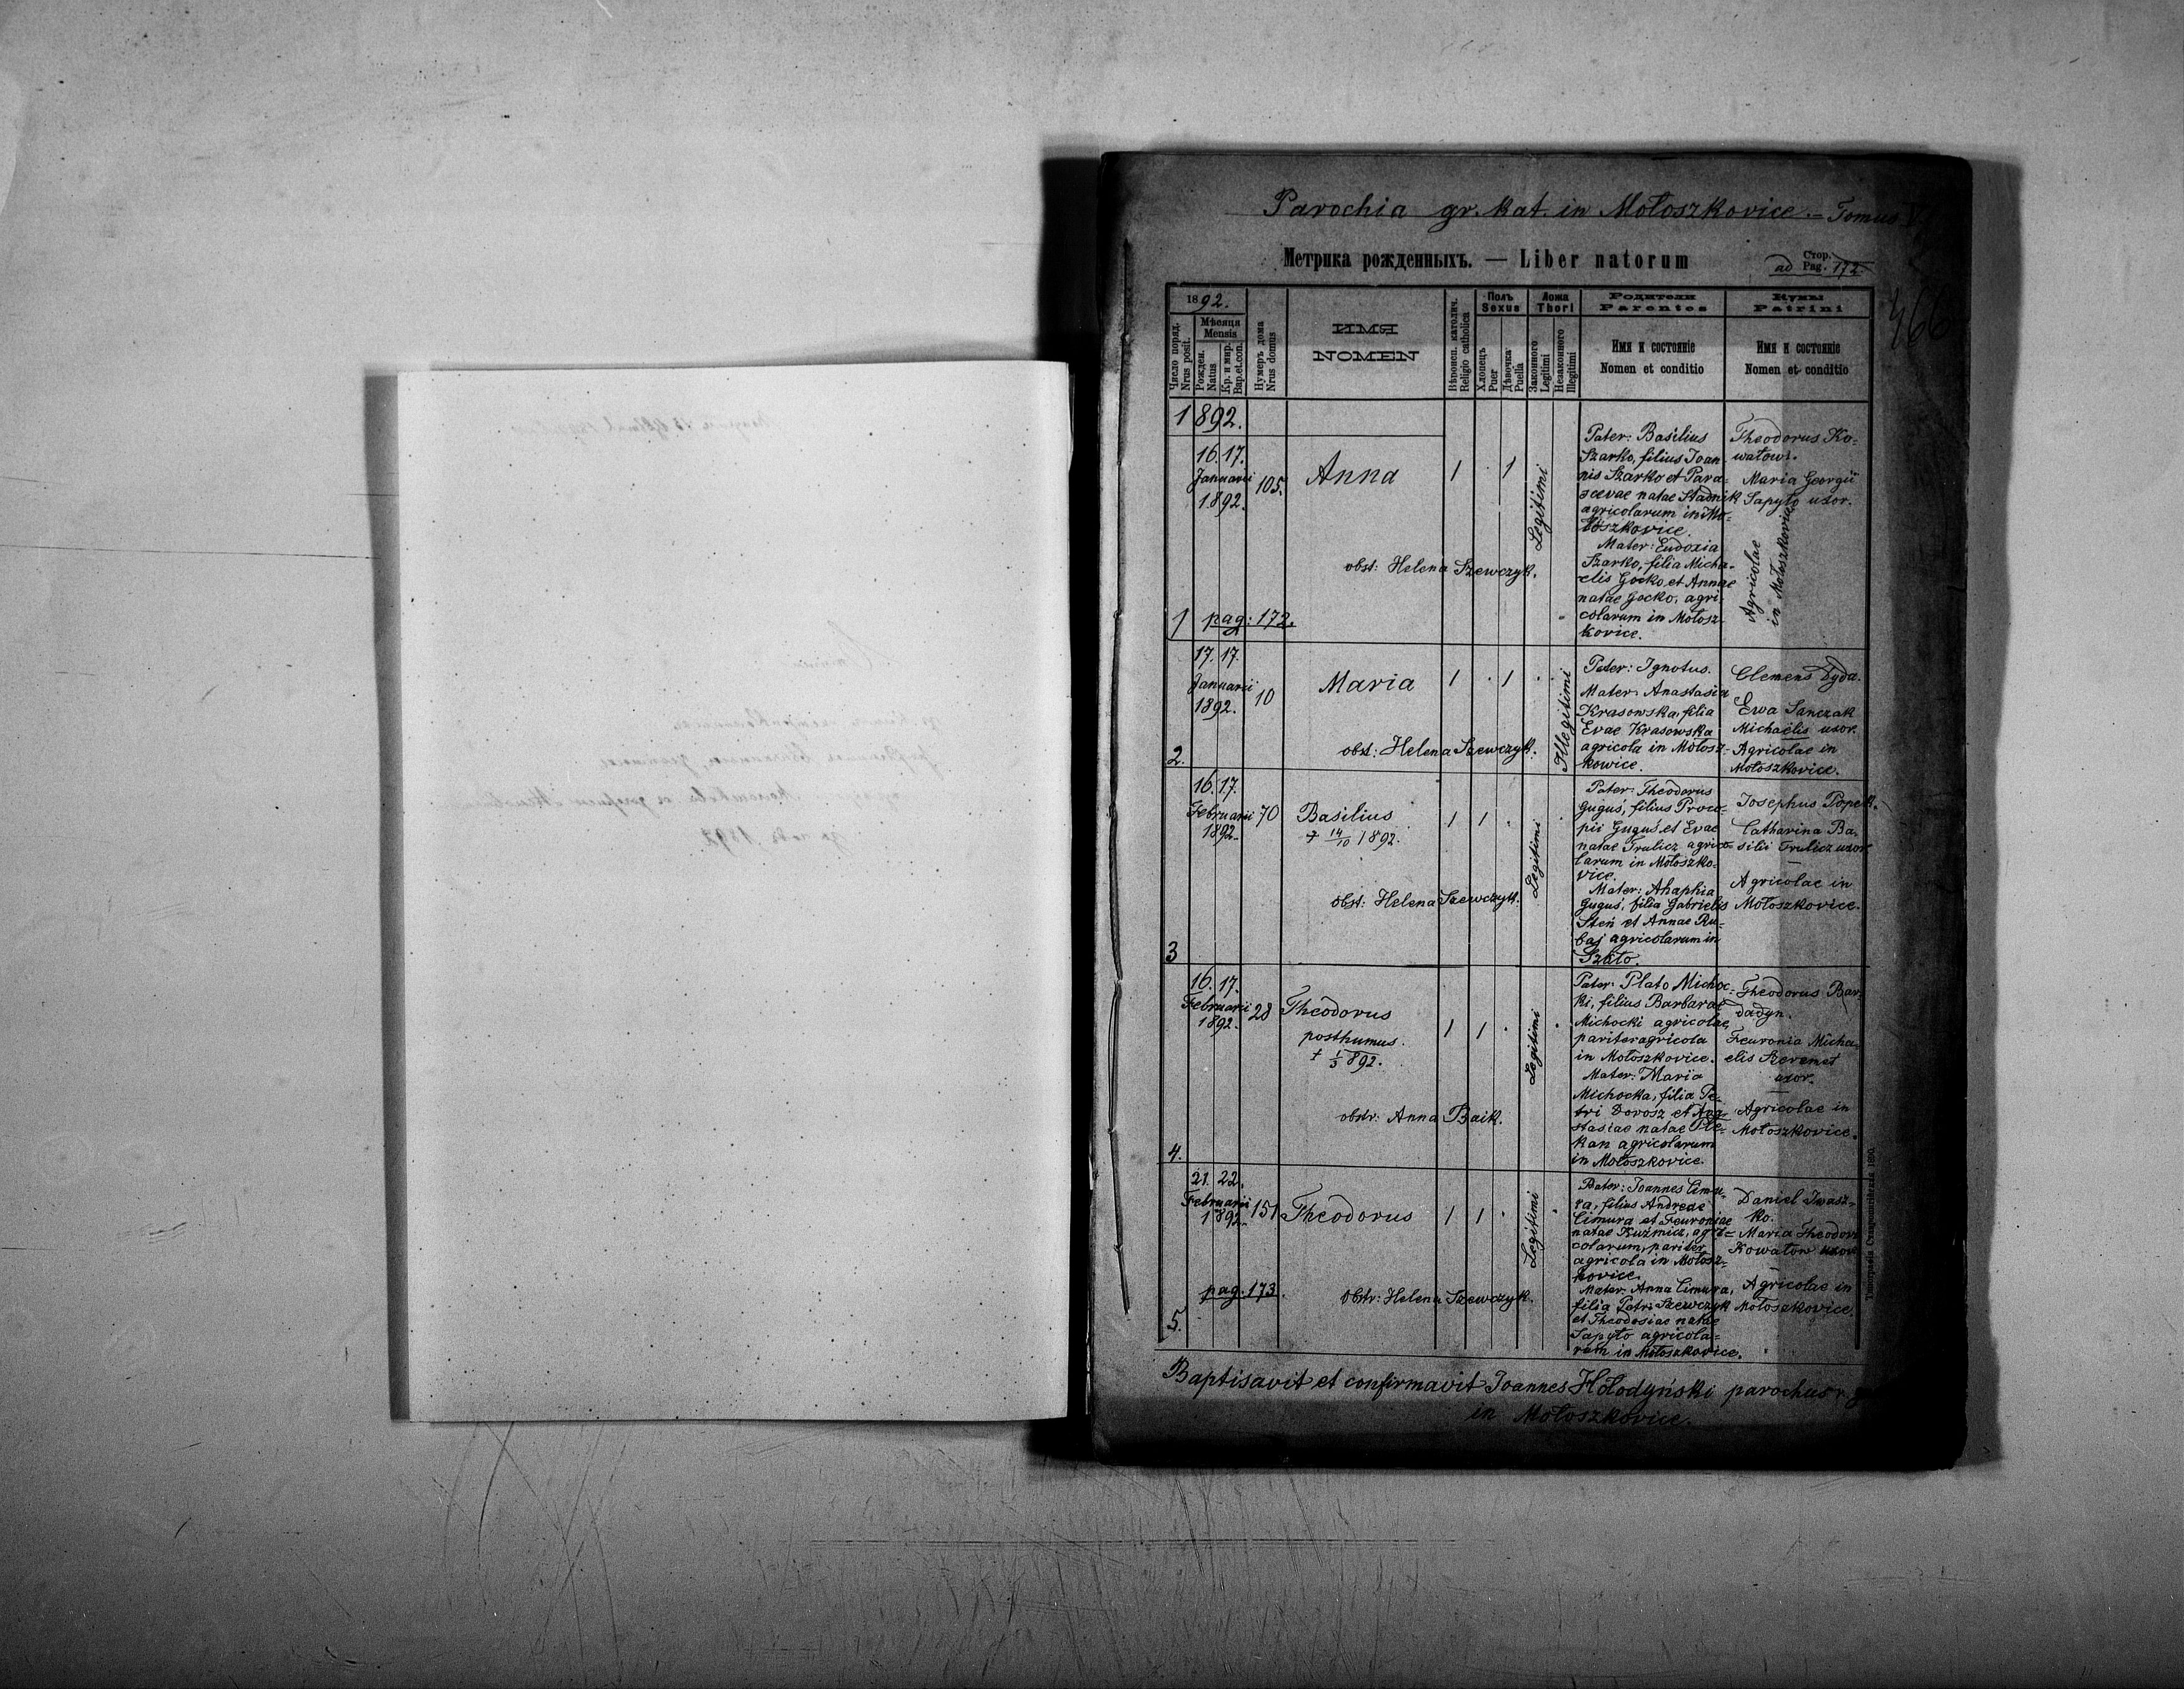 Parochia gr. kat. in Mołoszkovice. – Tomus
Метрика рожденныхъ. — Liber natorum
Стор.
ad Pag. 172.
466
1892.
Число поряд.
Nrus posit.
Мѣсяця
Mensis
Рожден.
Natus
Кр. и мир.
Bap. et con.
Нумеръ дома
Nrus domus
ИМЯ
NOMEN
Вѣроисп. католич.
Religio catholica
Полъ
Sexus
Хлопецъ
Puer
Дѣвочка
Puella
Ложа
Thori
Законного
Legitimi
Незаконного
Illegitimi
Родители
Parentes
Имя и состояніе
Nomen et conditio
Кумы
Patrini
Имя и состояніе
Nomen et conditio
1892.
16. 17.
Januarii
1892.
105.
Anna
1 . 1
Legitimi
obst: Helena Szewczyk.
1 pag: 172.
Pater: Basilius
Szarko, filius Joan
nis Szarko et Para-
scevae natae Stadnik
agricolarum in Mo-
łoszkovice.
Mater: Eudoxia
Szarko, filia Micha-
elis Gocko, et Annae
natae Gocko, agri-
colarum in Mołosz-
kovice.
Theodorus Ko-
watow.
Maria Georgii
Sapyto uxor.
Agricolae
in Mołoszkovice
17. 17.
Januarii
1892.
10
Maria
1 . 1 .
Illegitimi
obst: Helena Szewczyk.
2.
Pater: Ignotus.
Mater: Anastasia
Krasowska, filia
Evae Krasowska
agricola in Mołosz-
kowice.
Clemens Dyda.
Ewa Sanczak
Michaelis uxor.
Agricolae in
Mołoszkovice.
16. 17.
Februarii
1892.
70
Basilius
† 14/10 1892.
1 1 .
Legitimi
obst: Helena Szewczyk.
3
Pater: Theodorus
Guguś, filius Proco-
pii Guguś et Evae
natae Trulicz agrico-
larum in Mołoszko-
vice.
Mater: Ahaphia
Guguś, filia Gabrielis
Steń et Annae Ru-
baj agricolarum in
Szkło.
Josephus Popek.
Catharina Ba-
silii Trulicz uxor
Agricolae in
Mołoszkovice.
16. 17.
Februarii
1892.
28
Theodorus
posthumus.
† 1/3 892.
1 1 .
Legitimi
obstr: Anna Baik.
4.
Pater: Plato Michoc-
ki, filius Barbarae
Michocki agricolae,
pariter agricola
in Mołoszkovice.
Mater: Maria
Michocka, filia Pe-
tri Dorosz et Ana-
stasiae natae Ple-
kan agricolarum
in Mołoszkovice.
Theodorus Bar-
dadyn.
Feuronia Micha-
elis Szeremet
uxor.
Agricolae in
Mołoszkovice.
21. 22.
Februarii
1892.
151
Theodorus
1 1 .
Legitimi
pag: 173.
obstr: Helena Szewczyk.
5.
Pater: Joannes Cimu-
ra, filius Andreae
Cimura et Feuroniae
natae Kuźmicz, agri-
colarum, pariter
agricola in Mołosz-
kovice.
Mater: Anna Cimura,
filia Petri Szewczyk
et Theodosiae natae
Sapyto agricola-
rum in Mołoszkovice.
Daniel Iwasz-
ko.
Maria Theodori
Kowatow uxor
Agricolae in
Mołoszkovice
Типографія Ставропигійская 1890.
Baptisavit et confirmavit Joannes Hołodyński parochus
in Mołoszkovice.